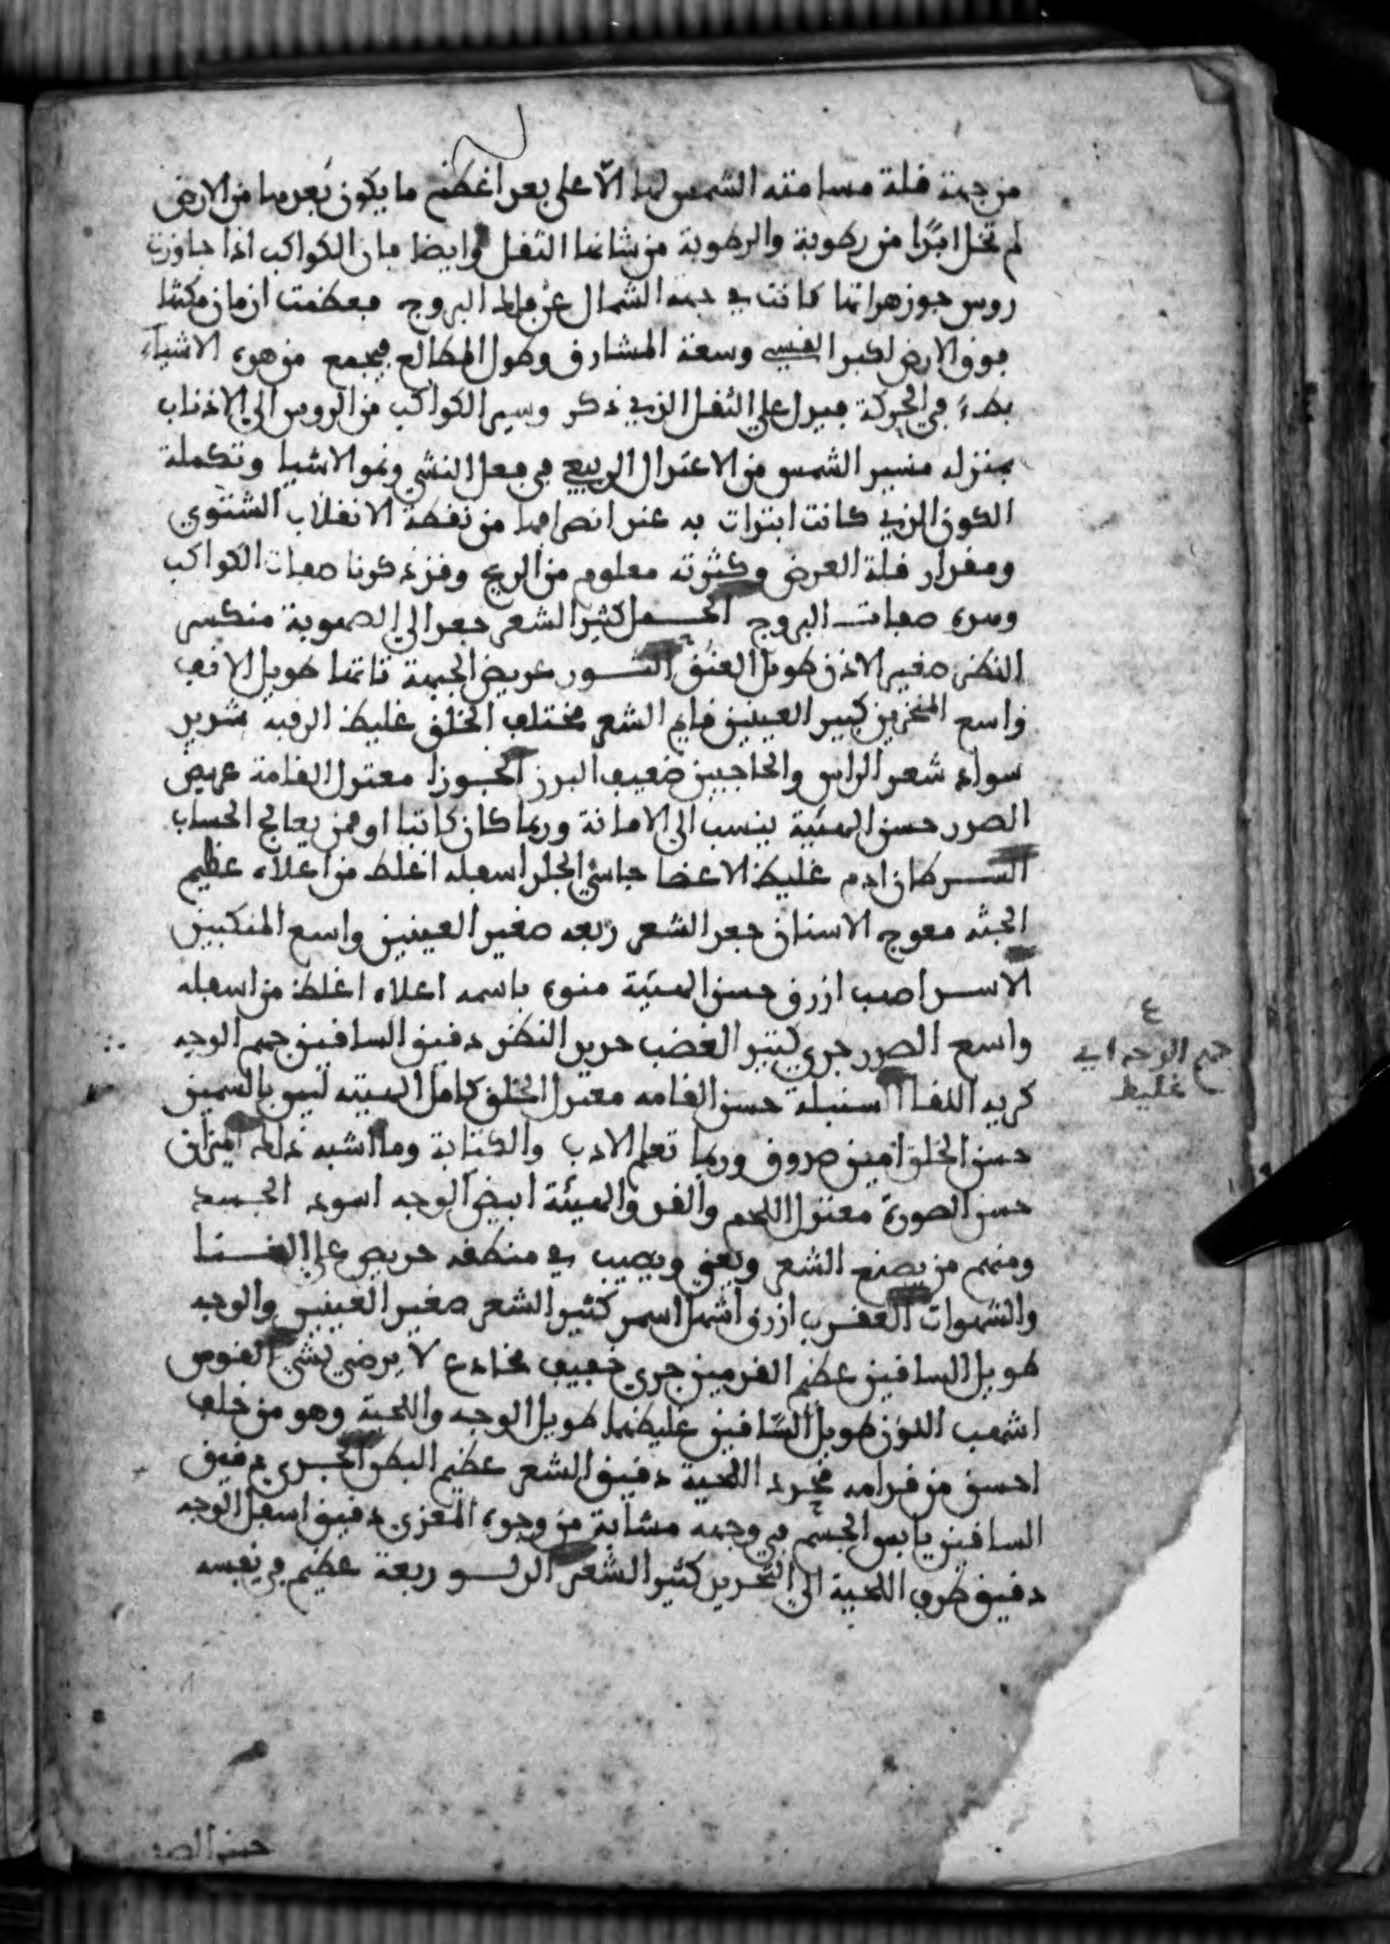 من جهة قلة مسامتة الشمس لها الّا على بعد اعظم ما يكون بعدها من الارض
لم تخل ابدًا من رطوبة والرطوبة من شانها الثقل وايضا فان الكواكب اذا جاوزت
روس جوزهراتها كانت في جهة الشمال عن فلك البروج فعظمت ازمان مكثها
فوق الارض لكبر القسي وسعة المشارق وطول المطالع فيجمع من هذه الاشياء
بطءً في الحركة فيدل على الثقل الذي ذكر وسير الكواكب من الروس الى الاذناب
بمنزله مسير الشمس من الاعتدال الربيعي في فعل النشي ونمو الاشيا وتكملة
الكون الذي كانت ابتدات به عند انصرافها من نقطة الانقلاب الشتوي
ومقدار قلة العرض وكثرته معلوم من الزيج وقد ذكرنا صفات الكواكب
وهذه صفات البروج الحمل كثير الشعر جعد الى الصهوبة منكسر
النظر صغير الاذن طويل العنق الثور عريض الجبهة قاتها طويل الانف
واسع المنخرين كبير العينين قايم الشعر مختلف الخلق غليظ الرقبة شديد
سواد شعر الراس والحاجبين ضعيف البدن الجوزا معتدل القامة عريض
الصدر حسن الهيئة ينسب الى الامانة وربما كان كاتبا او ممن يعالج الحساب
السرطان ادم غليظ الاعضا جاسي الجلد اسفله اغلظ من اعلاه عظيم
الجثه معوج الاسنان جعد الشعر ربعه صغير العينين واسع المنكبين
الاسد اصهب ازرق حسن الهيئة منوه باسمه اعلاه اغلظ من اسفله
واسع الصدر جري كثير الغضب حديد النظر دقيق الساقين جهم الوجه
كريه اللقا السنبلة حسن القامه معتدل الخلق كامل الهيئه ليس بالسمين
حسن الخلق امين صدوق وربما تعلم الادب والكتابة وما اشبه ذلك الميزان
حسن الصورة معتدل اللحم والقد والهيئة ابيض الوجه اسود الجسد
ومنهم من يصنع الشعر ويغني ويصيب في منطقه حريص على الغنا
والشهوات العقرب ازرق اشهل اسمر كثير الشعر صغير العينين والوجه
طويل الساقين عظيم القدمين جري خفيف مخادع لا يرضى بشي القوس
اشهب اللون طويل السّاقين غليظهما طويل الوجه واللحية وهو من خلف
احسن من قدامه مجرد اللحية دقيق الشعر عظيم البطن الجدي دقيق
الساقين يابس الجسم في وجهه مشابة من وجوه المعزى دقيق اسفل الوجه
دقيق طرف اللحية الى التحديد كثير الشعر الدلو ربعة عظيم في نفسه
حسن الصد
ع
جهم الوجه اي
غليظ